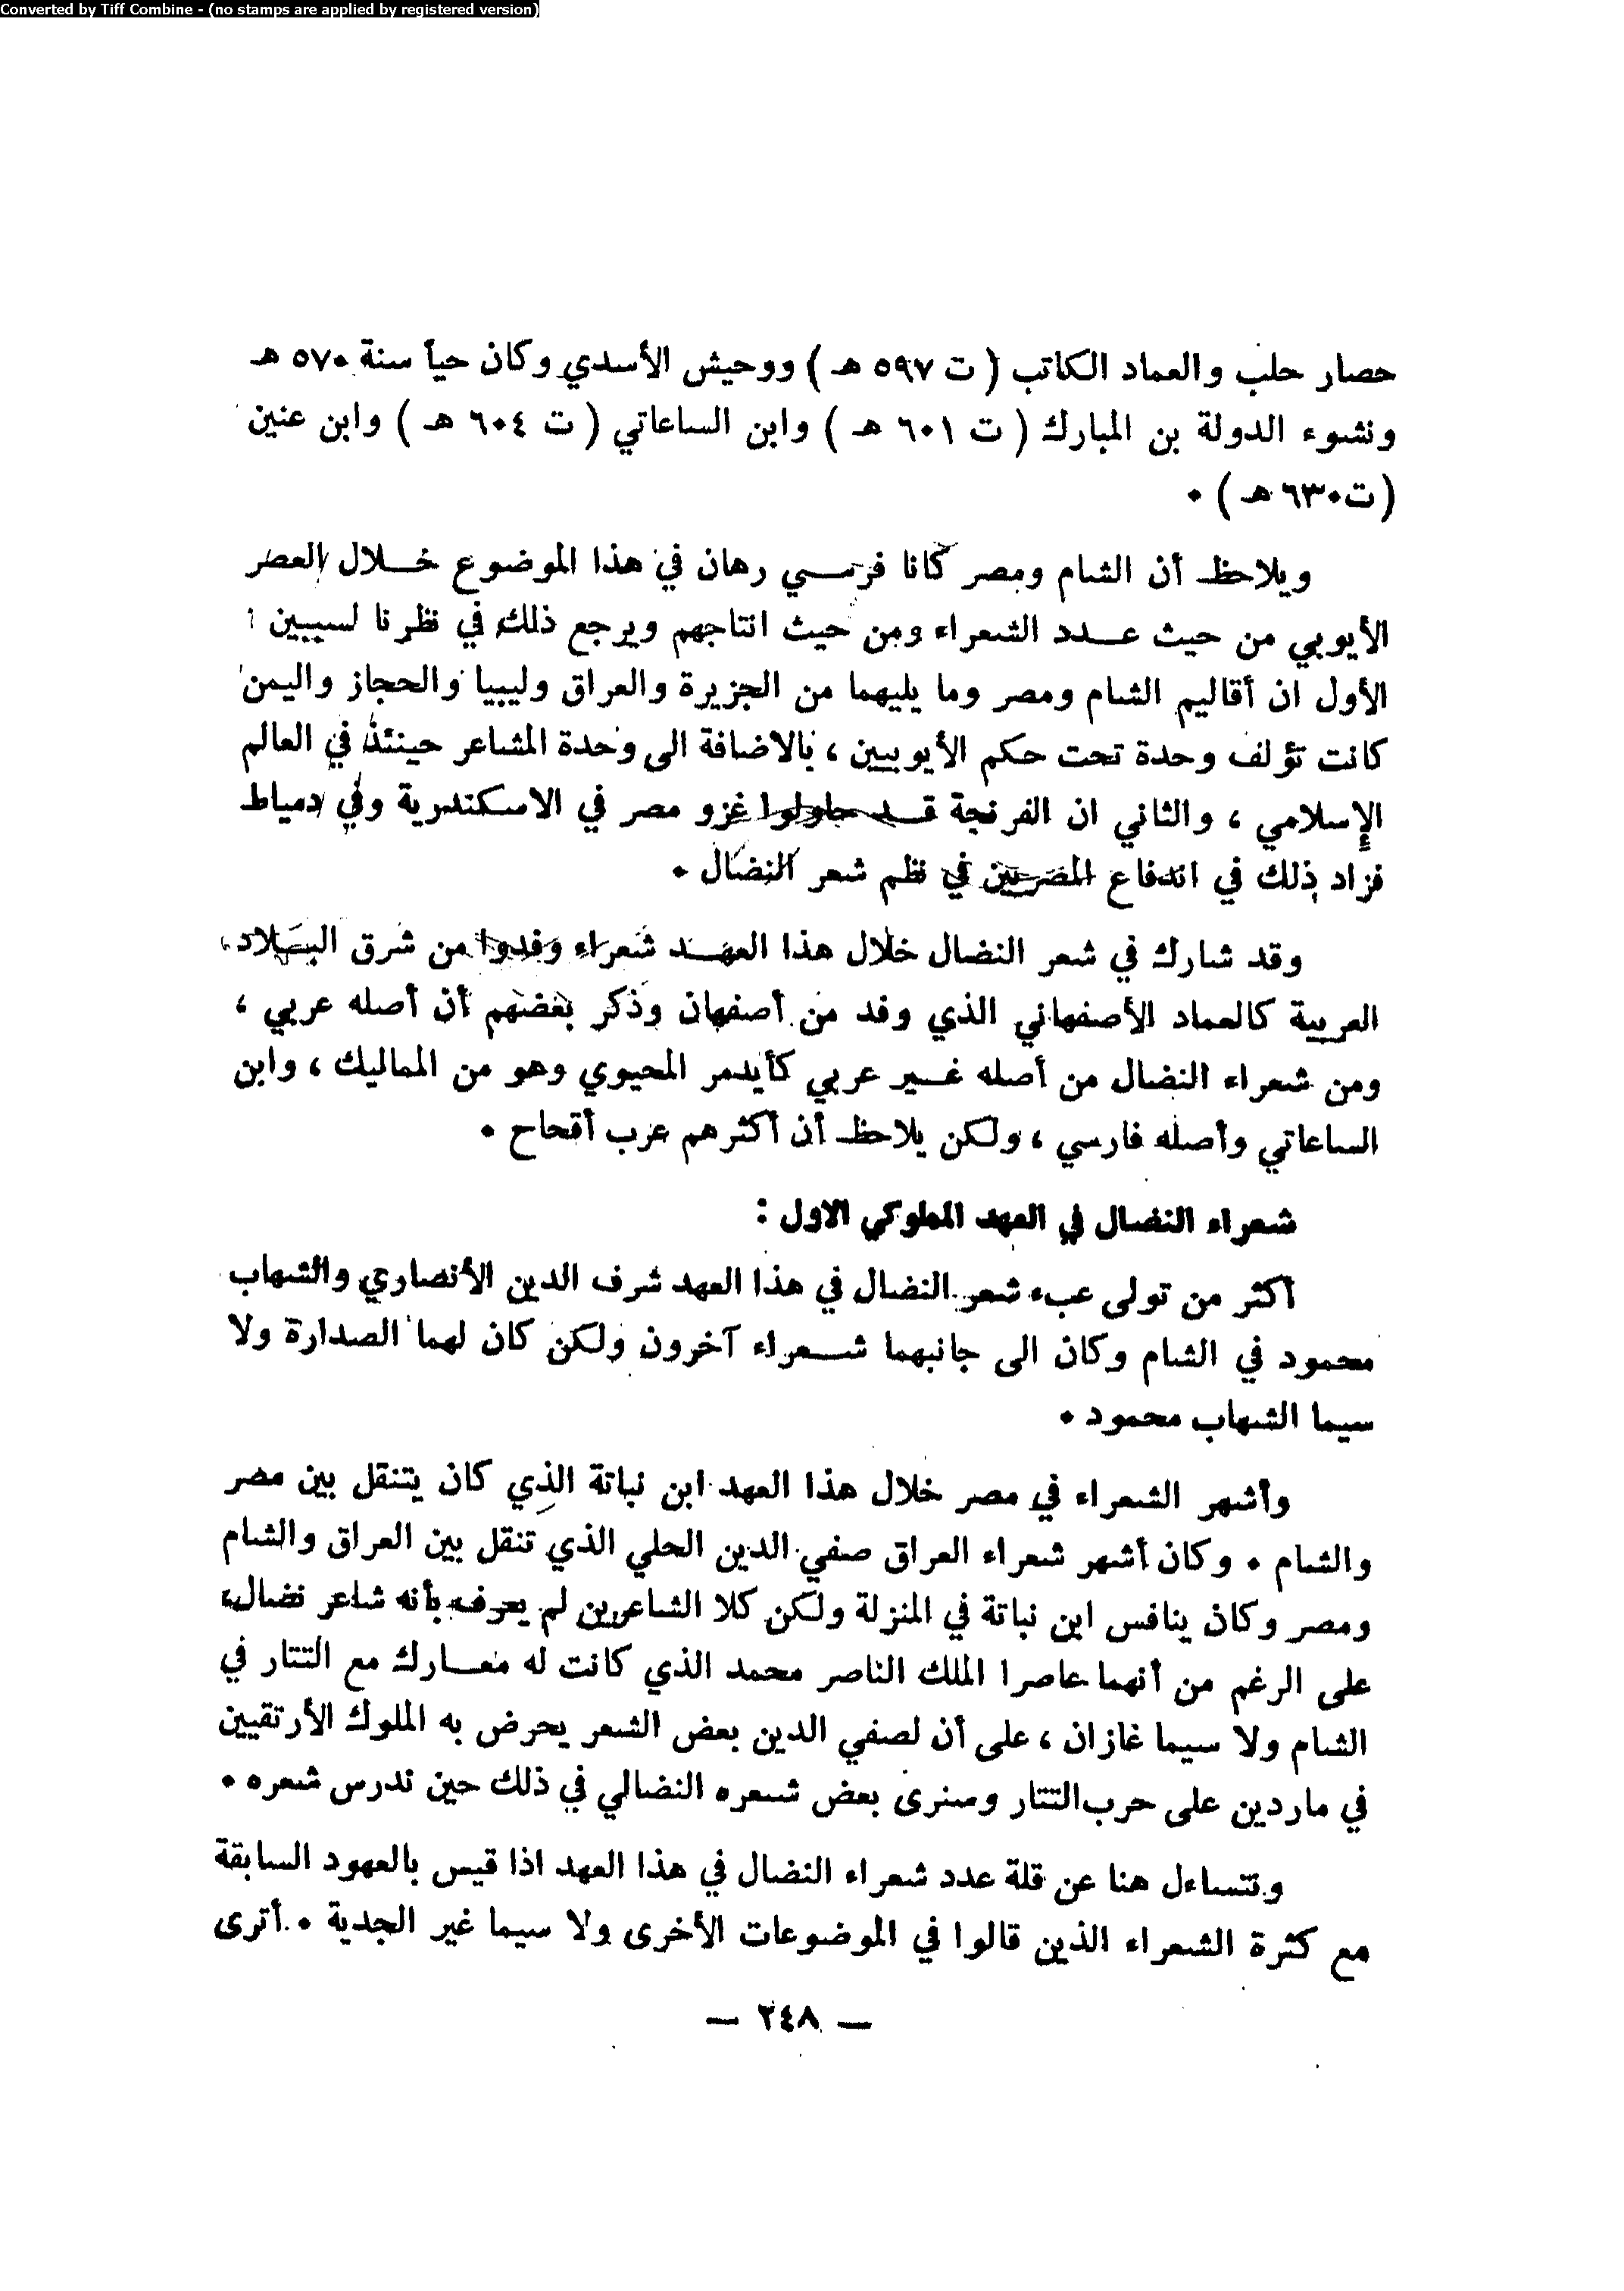 Converted by Tiff Combine - (no stamps are applied by registered version)
حصار حلب والعماد الكاتب ( ت ٥٩٧ هـ ) ووحيش الأسدي وكان حياً سنة ٥٧٠ هـ
ونشوء الدولة بن المبارك ( ت ٦٠١ هـ ) وابن الساعاتي ( ت ٦٠٤ هـ ) وابن عنين
( ت ٦٣٠ هـ ) ٠
ويلاحظ أن الشام ومصر كانا فرسي رهان في هذا الموضوع خلال العصر
الأيوبي من حيث عدد الشعراء ومن حيث انتاجهم ويرجع ذلك في نظرنا لسببين :
الأول ان أقاليم الشام ومصر وما يليهما من الجزيرة والعراق وليبيا والحجاز واليمن
كانت تؤلف وحدة تحت حكم الأيوبيين ، بالاضافة الى وحدة المشاعر حينئذ في العالم
الإسلامي ، والثاني ان الفرنجة قد حاولوا غزو مصر في الاسكندرية وفي دمياط
فزاد ذلك في اندفاع المصريين في نظم شعر النضال ٠
وقد شارك في شعر النضال خلال هذا العهد شعراء وفدوا من شرق البلاد
العربية كالعماد الأصفهاني الذي وفد من أصفهان وذكر بعضهم أن أصله عربي ،
ومن شعراء النضال من أصله غير عربي كأيدمر المحيوي وهو من المماليك ، وابن
الساعاتي وأصله فارسي ، ولكن يلاحظ أن أكثرهم عرب أقحاح ٠
شعراء النضال في العهد المملوكي الاول :
أكثر من تولى عبء شعر النضال في هذا العهد شرف الدين الأنصاري والشهاب
محمود في الشام وكان الى جانبهما شعراء آخرون ولكن كان لهما الصدارة ولا
سيما الشهاب محمود ٠
وأشهر الشعراء في مصر خلال هذا العهد ابن نباتة الذي كان يتنقل بين مصر
والشام ٠ وكان أشهر شعراء العراق صفي الدين الحلي الذي تنقل بين العراق والشام
ومصر وكان ينافس ابن نباتة في المنزلة ولكن كلا الشاعرين لم يعرف بأنه شاعر نضال،
على الرغم من أنهما عاصرا الملك الناصر محمد الذي كانت له معارك مع التتار في
الشام ولا سيما غازان ، على أن لصفي الدين بعض الشعر يحرض به الملوك الأرتقيين
في ماردين على حرب التتار وسنرى بعض شعره النضالي في ذلك حين ندرس شعره ٠
ونتساءل هنا عن قلة عدد شعراء النضال في هذا العهد اذا قيس بالعهود السابقة
مع كثرة الشعراء الذين قالوا في الموضوعات الأخرى ولا سيما غير الجدية ٠ أترى
— ٢٤٨ —